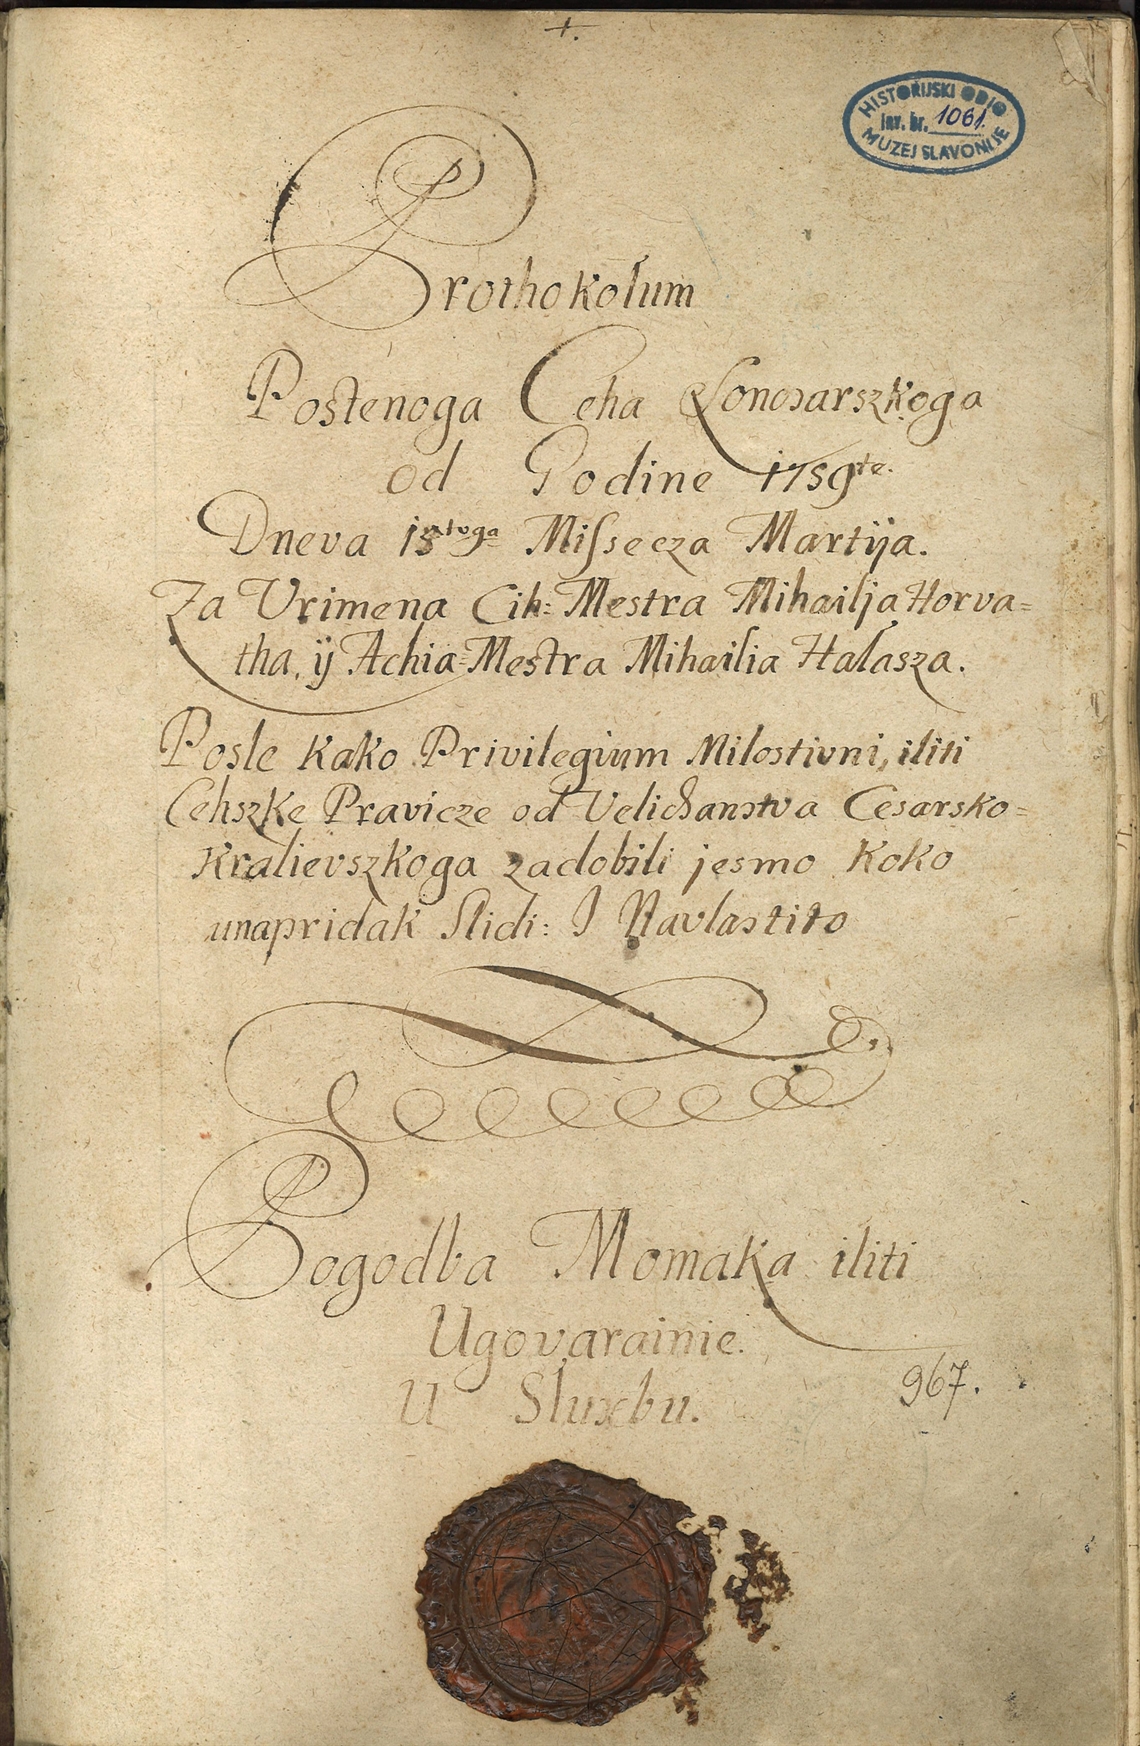 +.
HISTORIJSKI ODIO
Inv. br. 1061.
MUZEJ SLAVONIJE
Prothokolum
Postenoga Ceha Lonc​sarszkoga
od Godine 1759te.
Dneva 15toga Missecza Martija.
Za Vrimena Cih: Mestra Mihailja Horva=
tha, ÿ Achia=Mestra Mihailia Halasza.
Posle kako Privilegium Milostivni, iliti
Cehszke Pravicze od Velichanstva Cesarsko=
Kralievszkoga zadobili jesmo Koko
unapridak Slidi: I Navlastito
Pogodba Momaka iliti
Ugovarainie.
U Sluxbu.
967.